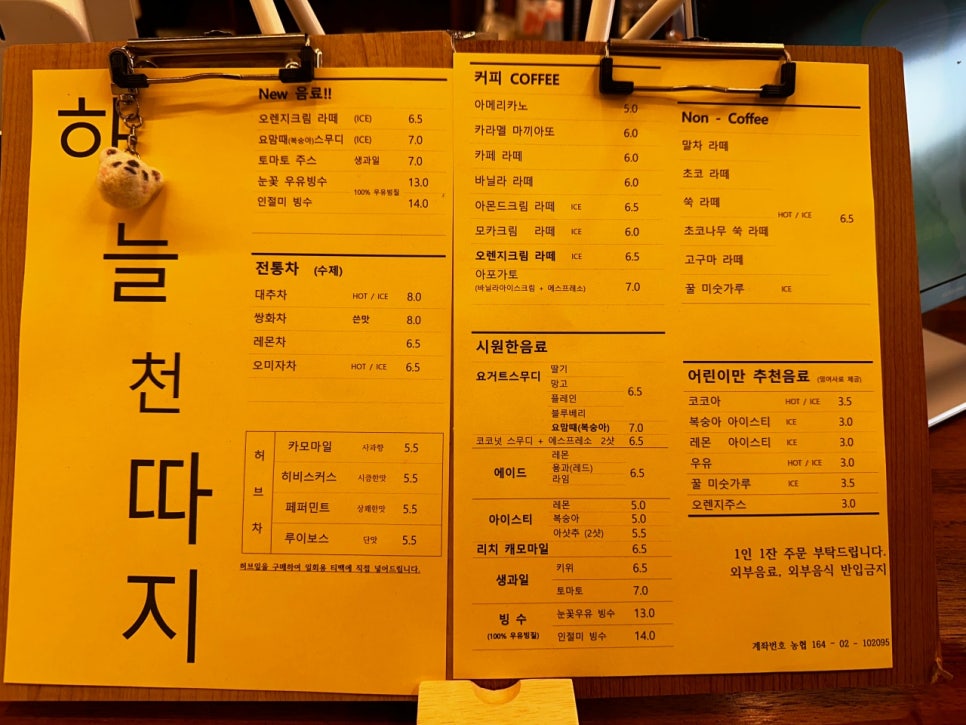 해
늘
천
따
지
New 음료!!
오렌지크림 라떼 (ICE) 6.5
요맘때(복숭아)스무디 (ICE) 7.0
토마토 주스 생과일 7.0
눈꽃 우유빙수 13.0
100% 우유빙질
인절미 빙수 14.0
전통차 (수제)
대추차 HOT / ICE 8.0
쌍화차 쓴맛 8.0
레몬차 6.5
오미자차 HOT / ICE 6.5
허브차
카모마일 사과향 5.5
히비스커스 시큼한맛 5.5
페퍼민트 상쾌한맛 5.5
루이보스 단맛 5.5
허브잎을 구매하여 일회용 티백에 직접 넣어드립니다.
커피 COFFEE
아메리카노 5.0
카라멜 마끼아또 6.0
카페 라떼 6.0
바닐라 라떼 6.0
아몬드크림 라떼 ICE 6.5
모카크림 라떼 ICE 6.0
오렌지크림 라떼 ICE 6.5
아포가토
(바닐라아이스크림 + 에스프레소) 7.0
시원한음료
요거트스무디
딸기
망고
플레인 6.5
블루베리
요맘때(복숭아) 7.0
코코넛 스무디 + 에스프레소 2샷 6.5
에이드
레몬
용과(레드) 6.5
라임
아이스티
레몬 5.0
복숭아 5.0
아샷추 (2샷) 5.5
리치 캐모마일 6.5
생과일
키위 6.5
토마토 7.0
빙 수
(100% 우유빙질)
눈꽃우유 빙수 13.0
인절미 빙수 14.0
Non - Coffee
말차 라떼
초코 라떼
쑥 라떼
HOT / ICE 6.5
초코나무 쑥 라떼
고구마 라떼
꿀 미숫가루 ICE
어린이만 추천음료 (떰어사료 제공)
코코아 HOT / ICE 3.5
복숭아 아이스티 ICE 3.0
레몬 아이스티 ICE 3.0
우유 HOT / ICE 3.0
꿀 미숫가루 ICE 3.5
오렌지주스 3.0
1인 1잔 주문 부탁드립니다.
외부음료, 외부음식 반입금지
계좌번호 농협 164 - 02 - 102095